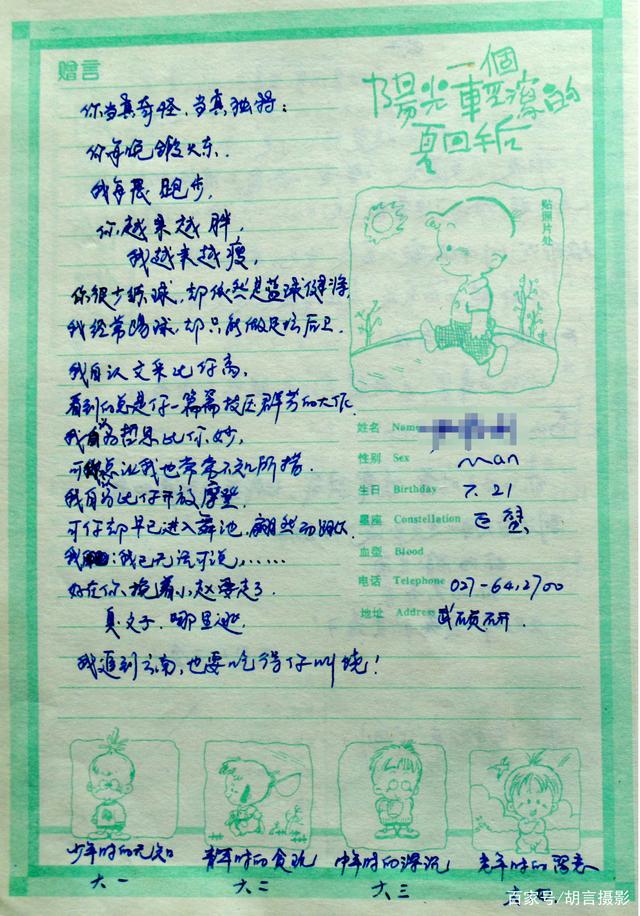 赠言
一個
陽光輕瀉的
夏日午后
你当真奇怪、当真独特:
你每晚锻火东.
我每晨跑步,
你越来越胖,
我越来越瘦,
你很少练球,却依然是蓝球健将.
我经常踢球,却只能做足坛后卫.
我自认文采比你高,
看到的总是你一篇篇技压群芳的大作.
我自为哲思比你妙,
可你总让我也常常不知所措.
我自为比你开放摩登
可你却早已进入舞池,翩然而
我:我已无法可说,……
好在你挽着小赵要走了.
真父子.哪里逃.
我追到云南,也要吃得你叫饶!
贴照片处
姓名 Name
性别 Sex man
生日 Birthday 7.21
星座 Constellation 巨蟹
血型 Blood
电话 Telephone 027-64,2700
地址 Address 武硕研.
少年时的无知
青年时的贪玩
中年时的深沉
老年时的
大一
大二
大三
大四
百家号/胡言摄影